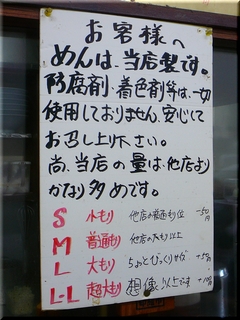 お客様へ
めんは、当店製です。
防腐剤・着色剤等は、一切
使用しておりません。安心して
お召し上り下さい。
尚、当店の量は、他店より
かなり多めです。
S 小もり 他店の普通もり位 -50円
M 普通もり 他店の大もり以上
L 大もり ちょとびっくりサイズ +50円
L-L 超大もり 想像以上です